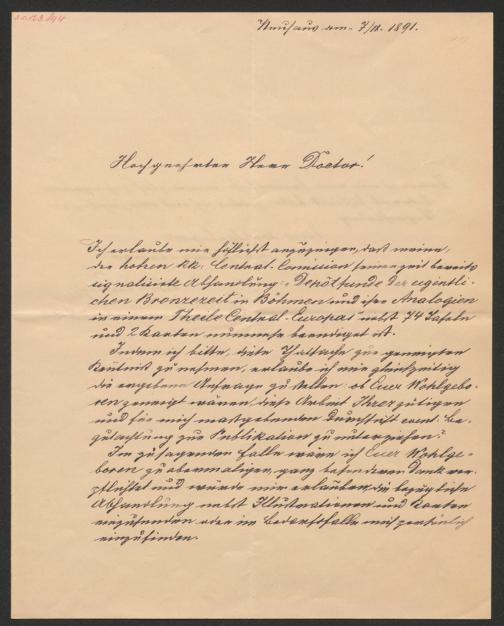 Neuhaus am 7/IX. 1891.
Hochgeehrter Herr Doctor!
Ich erlaube mir höflichst anzuzeigen, daß meine,
der hohen kk. Central-Comission seinerzeit bereits
signalisirte Abhandlung: "Depôtfunde der eigentli-
chen Bronzezeit in Böhmen und ihre Analogien
in einem Theile Central-Europas" nebst 74 Tafeln
und 2 Karten nunmehr beendiget ist.
Indem ich bitte, diese Thatsache zur geneigten
Kentniß zu nehmen, erlaube ich mir gleichzeitig
die ergebene Anfrage zu stellen: ob Euer Wohlgebo-
ren geneigt wären, diese Arbeit Ihrer gütigen
und für mich maßgebenden Durchsicht event. Be-
gutachtung zur Publikation zu unterziehen?
Im zusagenden Falle wäre ich Euer Wohlge-
boren zu abermaligen, ganz besonderen Dank ver-
pflichtet und würde mir erlauben die bezügliche
Abhandlung nebst Illustrationen und Karten
einzusenden oder im Bedarfsfalle mich persönlich
einzufinden.